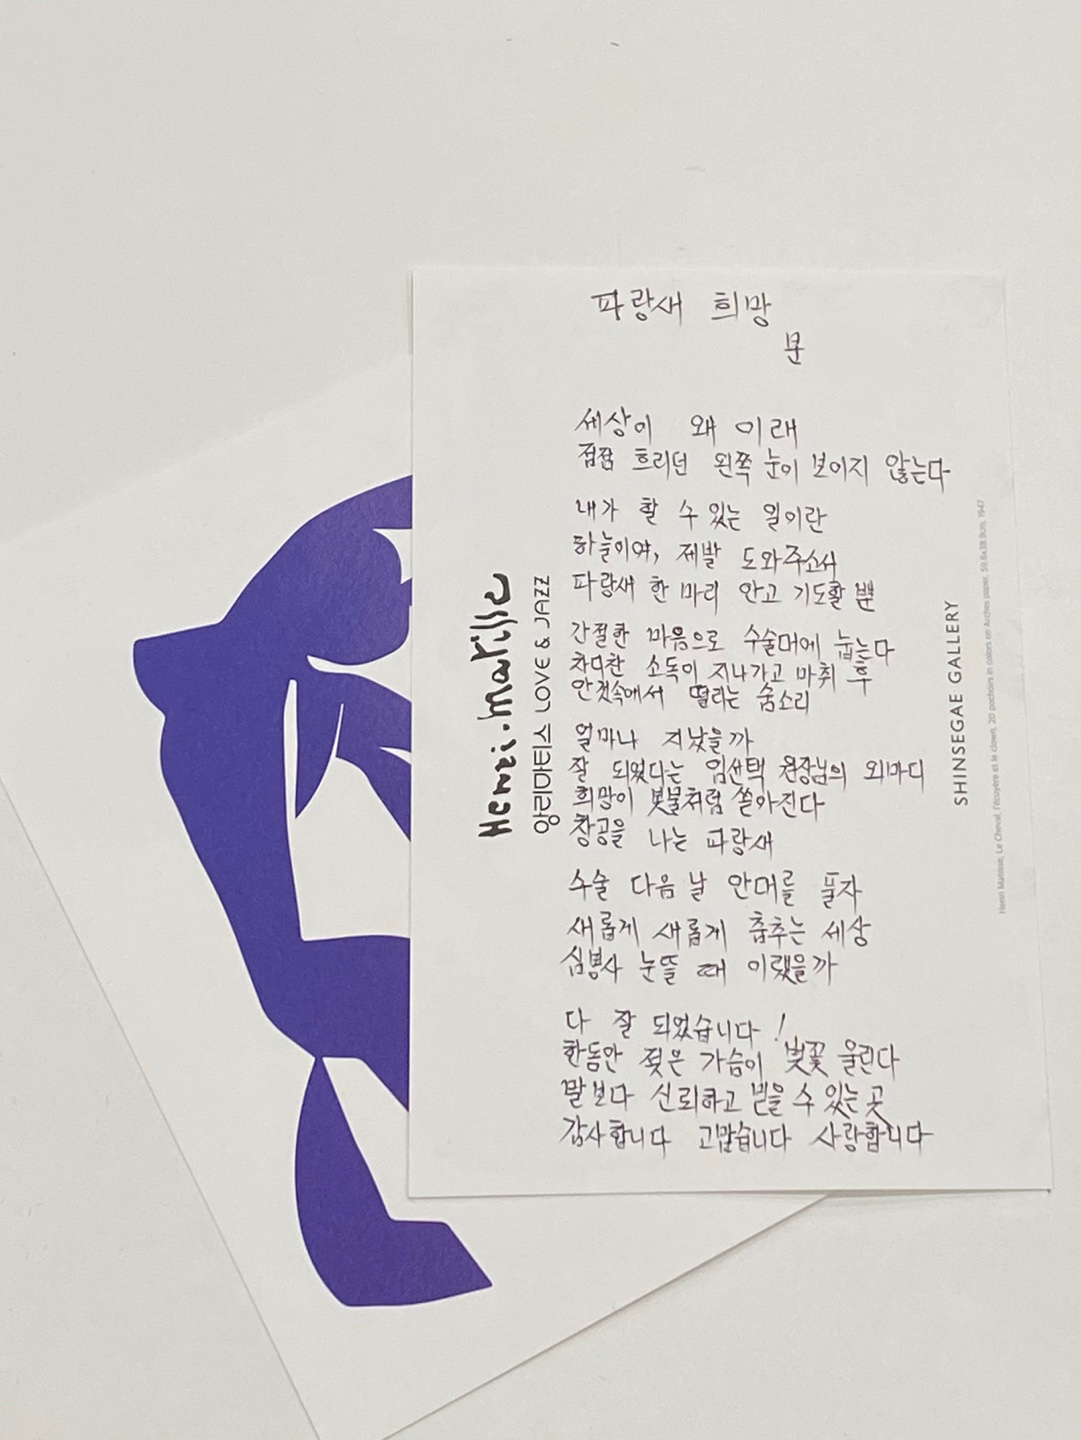 파랑새 희망
문
세상이 왜 이래
점점 흐리던 왼쪽 눈이 보이지 않는다
내가 할 수 있는 일이란
하늘이여, 제발 도와주소서
파랑새 한 마리 안고 기도할 뿐
간절한 마음으로 수술대에 눕는다
차디찬 소독이 지나가고 마취 후
안갯속에서 떨리는 숨소리
얼마나 지났을까
잘 되었다는 임선택 원장님의 외마디
희망이 봇물처럼 쏟아진다
창공을 나는 파랑새
수술 다음 날 안대를 풀자
새롭게 새롭게 춤추는 세상
심봉사 눈뜰 때 이랬을까
다 잘 되었습니다!
한동안 젖은 가슴이 벚꽃 울린다
말보다 신뢰하고 믿을 수 있는 곳
감사합니다 고맙습니다 사랑합니다
Henri. matisse
앙리마티스 LOVE & JAZZ
SHINSEGAE GALLERY
Henri Matisse, Le Cheval, l'écuyère et le clown, 20 pochoirs in colors on Arches paper, 1947